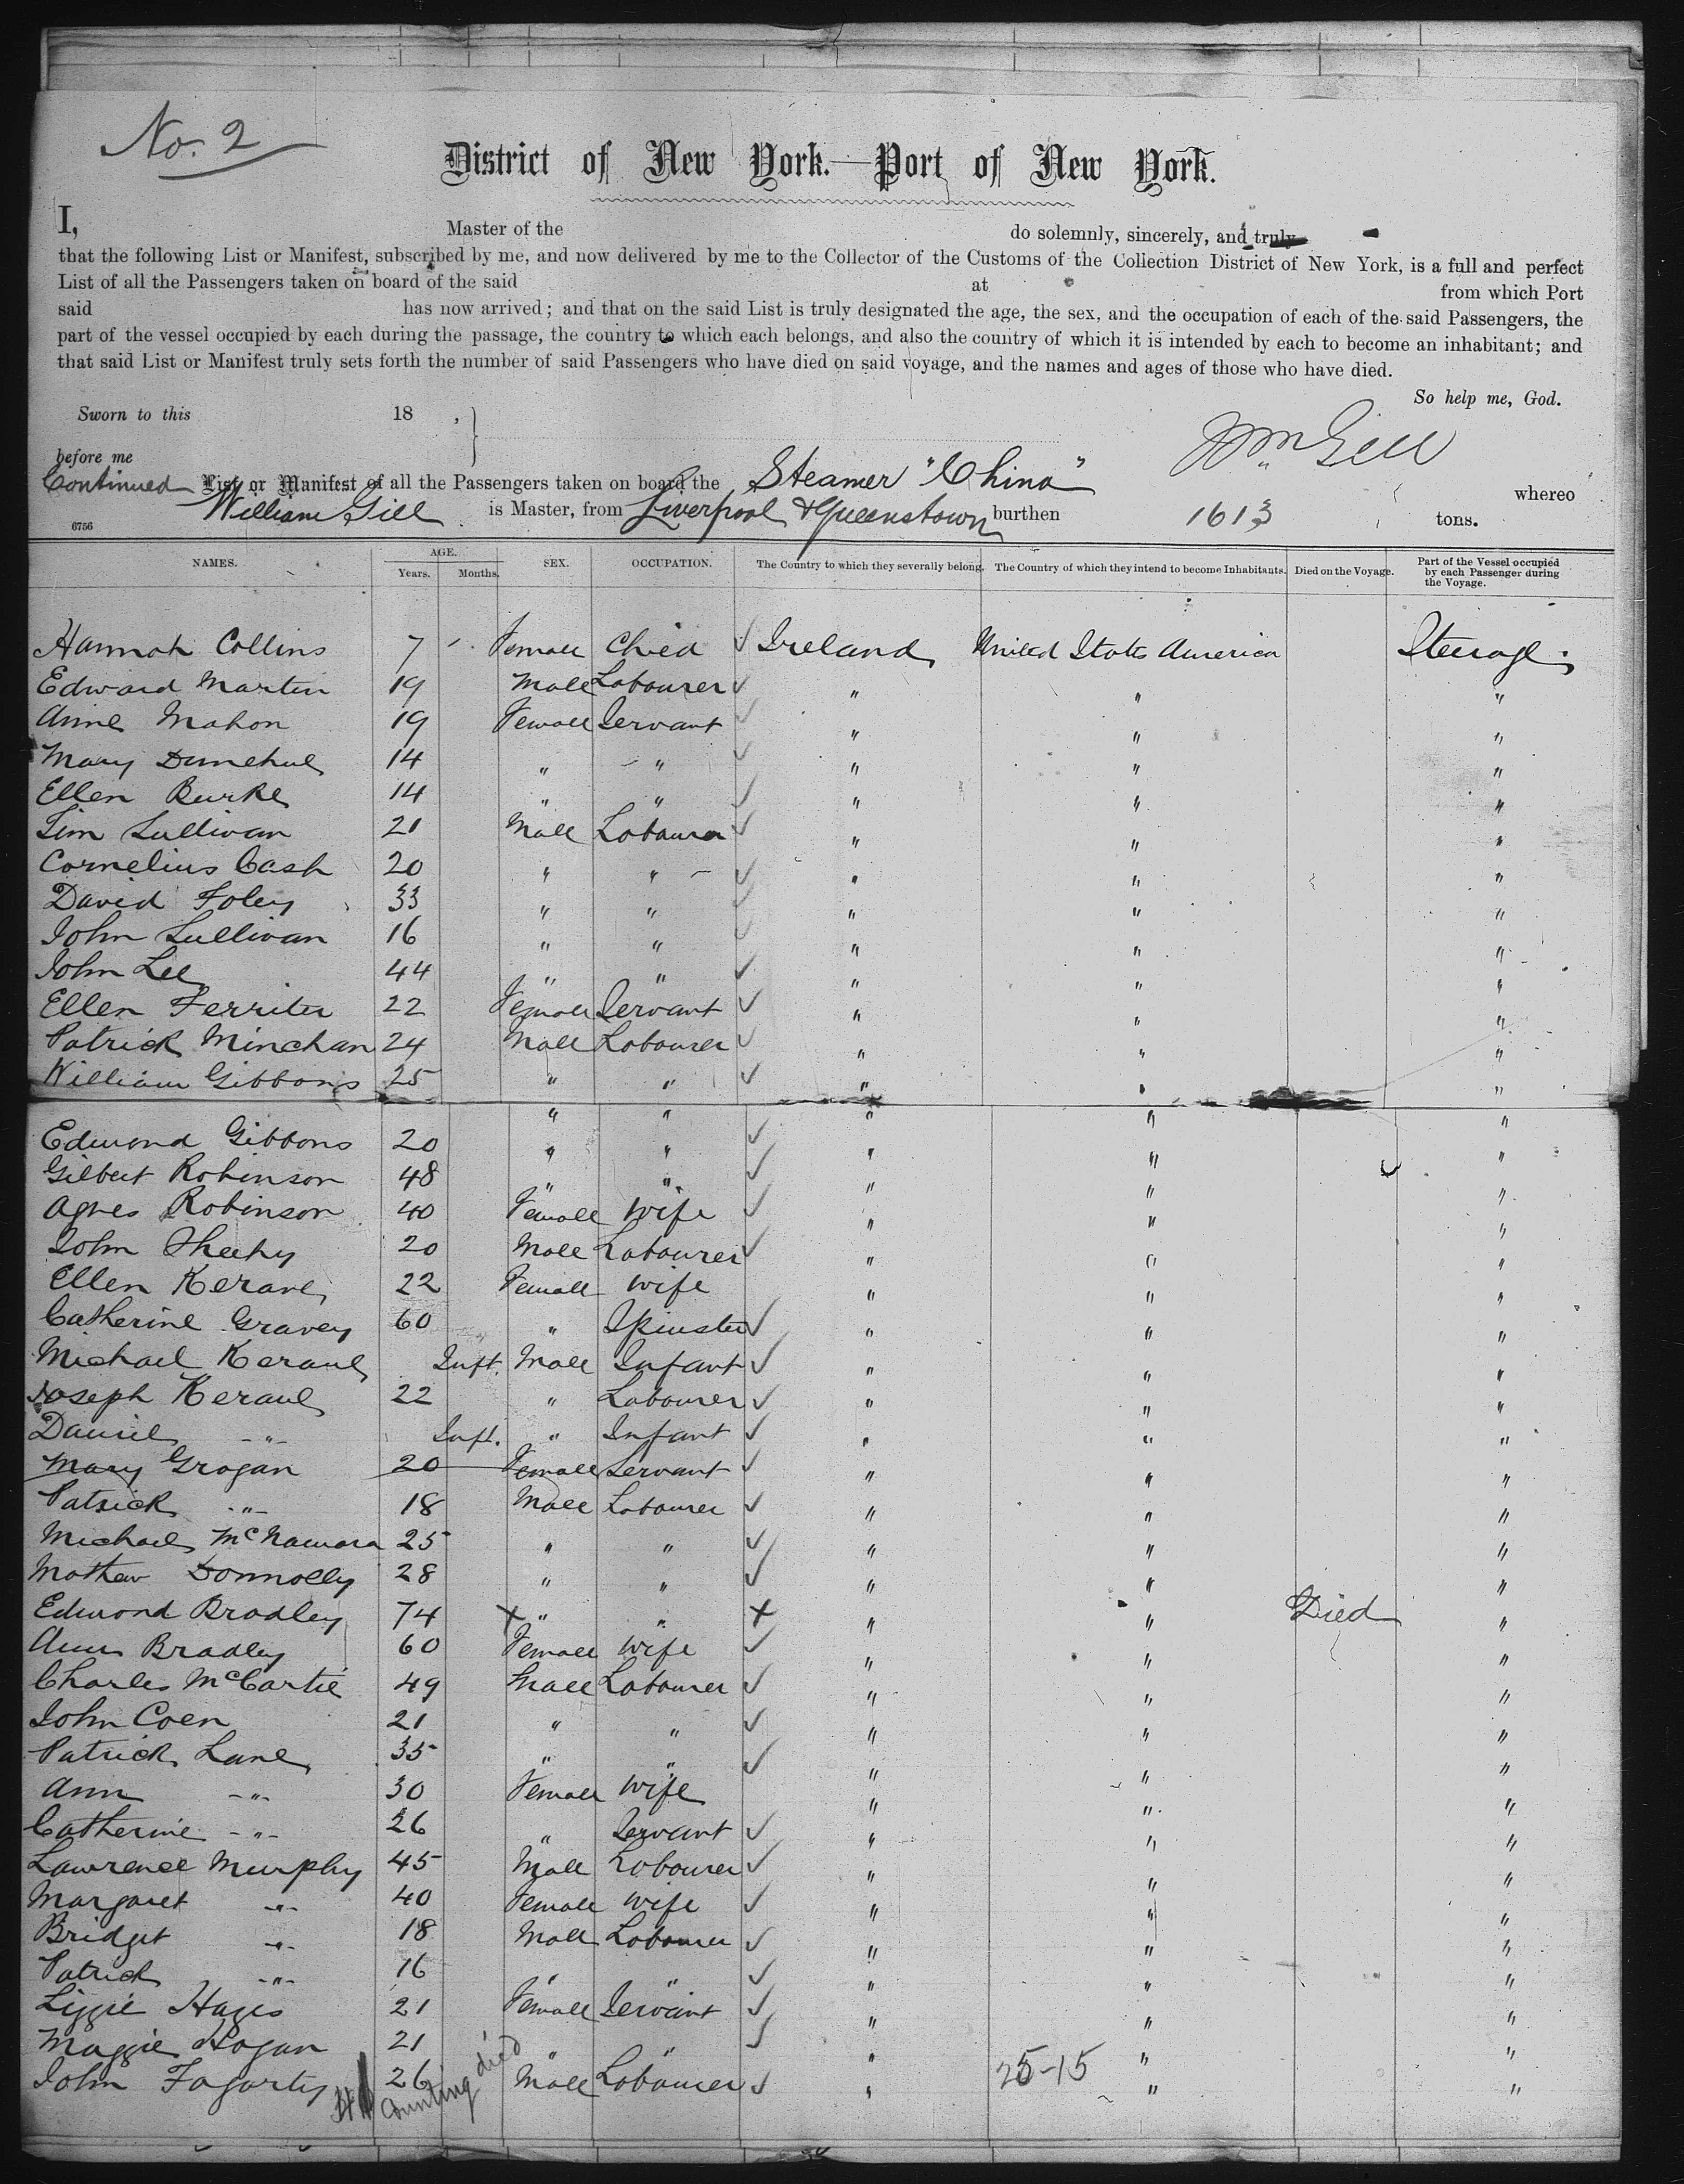 No. 2
District of New York.—Port of New York.
I, Master of the do solemnly, sincerely, and truly
that the following List or Manifest, subscribed by me, and now delivered by me to the Collector of the Customs of the Collection District of New York, is a full and perfect
List of all the Passengers taken on board of the said at from which Port
said has now arrived; and that on the said List is truly designated the age, the sex, and the occupation of each of the said Passengers, the
part of the vessel occupied by each during the passage, the country to which each belongs, and also the country of which it is intended by each to become an inhabitant; and
that said List or Manifest truly sets forth the number of said Passengers who have died on said voyage, and the names and ages of those who have died.
So help me, God.
Sworn to this 18 ,
before me
Wm Gill
Continued List or Manifest of all the Passengers taken on board the Steamer "China" whereo
William Gill is Master, from Liverpool & Queenstown burthen 1613 tons.
6756
NAMES. AGE. Years. Months. SEX. OCCUPATION. The Country to which they severally belong. The Country of which they intend to become Inhabitants. Died on the Voyage. Part of the Vessel occupied by each Passenger during the Voyage.
Hannah Collins 7 Female Child Ireland United States America Steerage
Edward Martin 19 Male Labourer " " "
Anne Mahon 19 Female Servant " " "
Mary 14 " " " " "
Ellen Burke 14 " " " " "
Tim Sullivan 21 Male Labourer " " "
Cornelius Cash 20 " " " " "
David Foley 33 " " " " "
John Sullivan 16 " " " " "
John Lee 44 " " " " "
Ellen Ferriter 22 Female Servant " " "
Patrick Minchan 24 Male Labourer " " "
William Gibbons 25 " " " " "
Edmond Gibbons 20 " " " " "
Gilbert Robinson 48 " " " " "
Agnes Robinson 40 Female Wife " " "
John Sheehy 20 Male Labourer " " "
Ellen Kerane 22 Female Wife " " "
Catherine Gravey 60 " Spinster " " "
Michael Kerane Inft. Male Infant " " "
Joseph Kerane 22 " Labourer " " "
Daniel " Inft. " Infant " " "
Mary Grogan 20 Female Servant " " "
Patrick " 18 Male Labourer " " "
Michael McNamara 25 " " " " "
Mathew Donnolly 28 " " " " "
Edmond Bradley 74 x " " x " " Died "
Ann Bradley 60 Female Wife " " "
Charles McCartie 49 Male Labourer " " "
John Coen 21 " " " " "
Patrick Lane 35 " " " " "
Ann " 30 Female Wife " " "
Catherine " 26 " Servant " " "
Lawrence Murphy 45 Male Labourer " " "
Margaret " 40 Female Wife " " "
Bridget " 18 Male Labourer " " "
Patrick " 16 " " " " "
Lizzie Hayes 21 Female Servant " " "
Maggie Hogan 21 " " " " "
John Fogarty 26 Male Labourer " " "
counting died
25-15